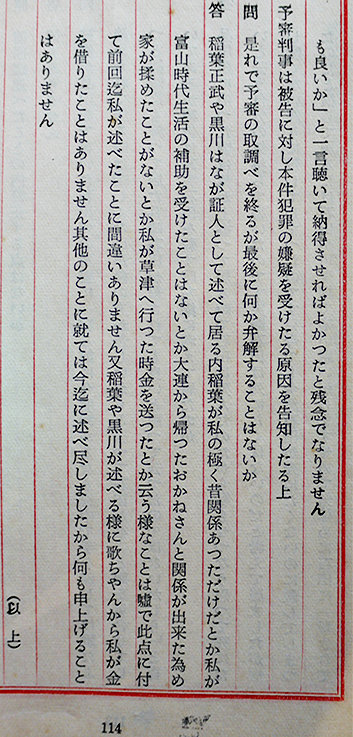 も良いか」と一言聴いて納得させればよかつたと残念でなりません
予審判事は被告に対し本件犯罪の嫌疑を受けたる原因を告知したる上
問 是れで予審の取調べを終るが最後に何か弁解することはないか
答 稲葉正武や黒川はなが証人として述べて居る内稲葉が私の極く昔関係あつただけだとか私が
富山時代生活の補助を受けたことはないとか大連から帰つたおかねさんと関係が出来た為め
家が揉めたことがないとか私が草津へ行つた時金を送つたとか云う様なことは嘘で此点に付
て前回迄私が述べたことに間違いありません又稲葉や黒川が述べる様に歌ちやんから私が金
を借りたことはありません其他のことに就ては今迄に述べ尽しましたから何も申上げること
はありません
（以上）
114